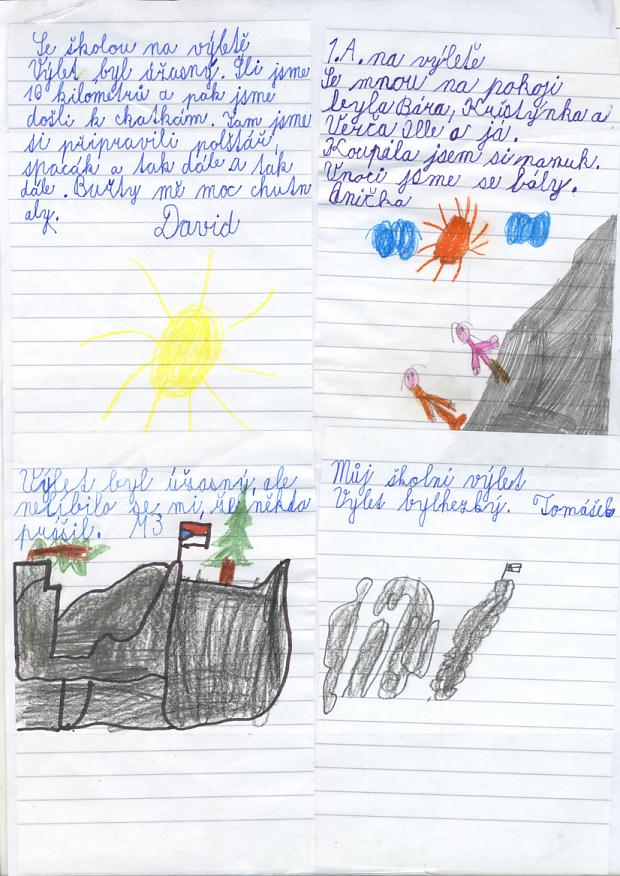 Se školou na výletě
Výlet byl úžasný. Šli jsme
16 kilometrů a pak jsme
došli k chatkám. Tam jsme
si připravili polštář,
spacák a tak dále a tak
dále. Buřty mě moc chutn
aly.
David
1.A. na výletě
Se mnou na pokoji
byla Bára, Kristýnka a
Verča Ille a já.
Koupila jsem si nanuk.
Vnoci jsme se bály.
Anička
Výlet byl úžasný, ale
nelíbilo se mi, že někdo
prášil. M3
Můj školní výlet
Výlet bylhezký. Tomášek